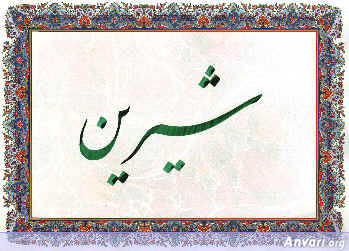 شیرین
Anvari.org